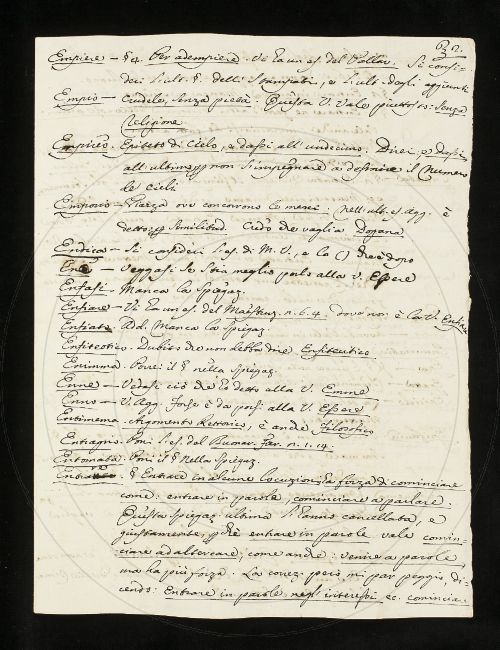 62.
Empiere — §4. Per adempiere. Vi è un es. del Vallar. Si consi-
deri l'ult. § delli Stampati, e l'ult. degli aggiunti
Empio — Crudele, senza pietà. Questa V. vale piuttosto: Senza
Religione
Empireo — Epiteto di Cielo, e dassi all'undecimo. Direi, e dassi
all'ultimo per non s'impegnare a definire il Numero
de cieli
Emporio — Piazza ove concorrono le merci. Nell'ult. es. agg. è
detto per similitud. Credo che vaglia Dogana
Endica — Si consideri l'es. di M. V., e la () che è dopo
Ente — Veggasi se stia meglio porlo alla V. Essere
Enfasi — Manca la Spiegaz.
Enfiare — Vi è un es. del Maestruz. n. 6. 4. dove non è la V. Enfiare
Enfiato. Add. Manca la Spiegaz.
Enfiteotico. Dubito che non debba dire Enfiteutico
Enimma. Porre il § nella Spiegaz.
Enne — Vedasi ciò che ho detto alla V. Emme
Enno — V. Agg. Forse è da porsi alla V. Essere
Entimema. Argomento Rettorico, è anche Filosofico
Entragno. Porvi l'es. del Buonar. Fier. n. 1. 14.
Entomata. Porvi il § nella Spiegaz.
Entrare. § Entrare in alcune locuzioni ha forza di cominciare
come: entrare in parole, cominciare a parlare.
Questa Spiegaz. ultima l'anno cancellata, e
giustamente, perché entrare in parole vale comin-
ciare ad altercare, come anche: venire a parole,
ma ha più forza. La correz. però mi par peggio, di-
cendo: Entrare in parole, negl'interessi ec. comincia-